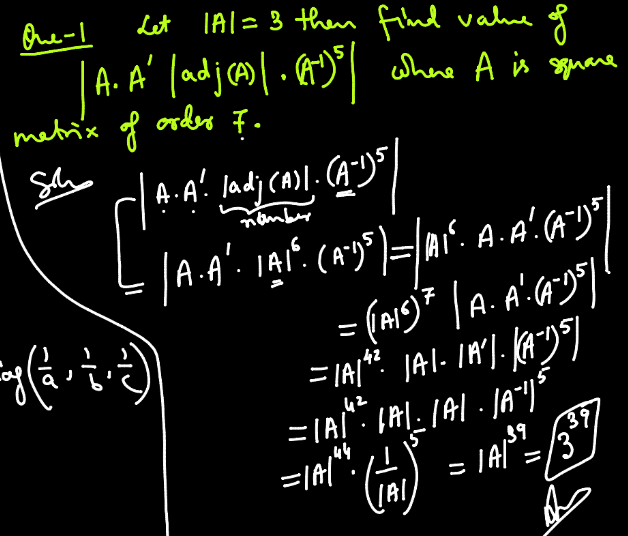 Que-1 Let |A| = 3 then find value of
|A. A' |adj(A)| . (A⁻¹)⁵| where A is square
matrix of order 7.
Soln |A.A'. |adj(A)|. (A⁻¹)⁵|
number
= |A.A'. |A|⁶. (A⁻¹)⁵| = ||A|⁶. A. A'. (A⁻¹)⁵|
= (|A|⁶)⁷ |A. A'. (A⁻¹)⁵|
= |A|⁴². |A|. |A'|. |(A⁻¹)⁵|
= |A|⁴². |A|. |A| . |A⁻¹|⁵
= |A|⁴⁴. (1/|A|)⁵ = |A|³⁹ = 3³⁹
Ans
(1/a, 1/b, 1/c)